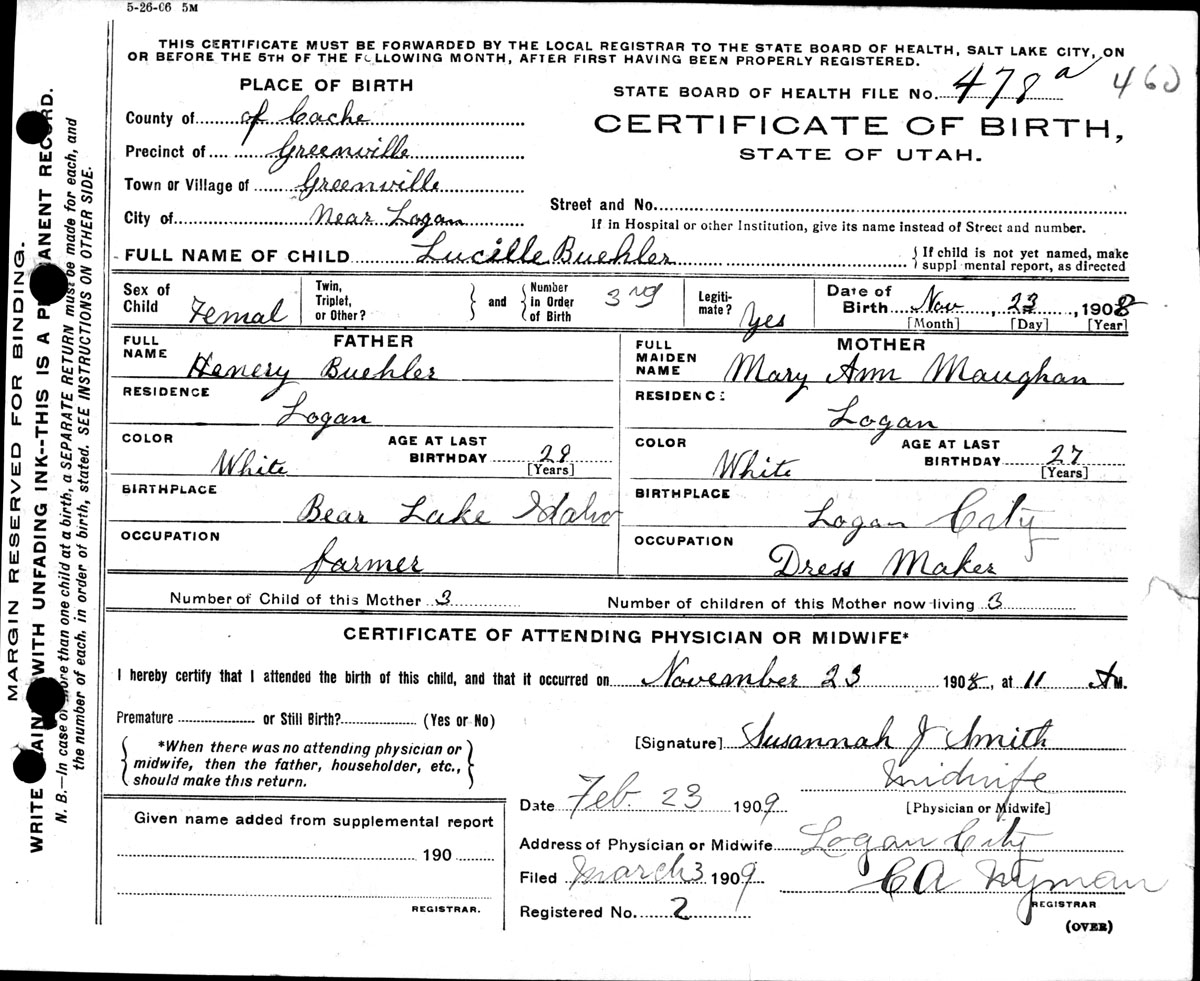 5-26-06 5M
THIS CERTIFICATE MUST BE FORWARDED BY THE LOCAL REGISTRAR TO THE STATE BOARD OF HEALTH, SALT LAKE CITY, ON
OR BEFORE THE 5TH OF THE FOLLOWING MONTH, AFTER FIRST HAVING BEEN PROPERLY REGISTERED.
PLACE OF BIRTH
STATE BOARD OF HEALTH FILE No. 478 a 460
County of of Cache
CERTIFICATE OF BIRTH,
Precinct of Greenville
STATE OF UTAH.
Town or Village of Greenville
City of Near Logan
Street and No.
If in Hospital or other Institution, give its name instead of Street and number.
FULL NAME OF CHILD Lucille Buehler
{If child is not yet named, make
suppl mental report, as directed
Sex of Child Femal
Twin, Triplet, or Other? } and { Number in Order of Birth 3rd
Legiti-mate? Yes
Date of Birth Nov, 23, 1908
[Month] [Day] [Year]
FATHER
FULL NAME Henery Buehler
RESIDENCE Logan
COLOR White
AGE AT LAST BIRTHDAY 28
[Years]
BIRTHPLACE Bear Lake Idaho
OCCUPATION farmer
MOTHER
FULL MAIDEN NAME Mary Ann Maughan
RESIDENC: Logan
COLOR White
AGE AT LAST BIRTHDAY 27
[Years]
BIRTHPLACE Logan City
OCCUPATION Dress Maker
Number of Child of this Mother 3 Number of children of this Mother now living 3
CERTIFICATE OF ATTENDING PHYSICIAN OR MIDWIFE*
I hereby certify that I attended the birth of this child, and that it occurred on November 23 1908, at 11 AM.
Premature or Still Birth? (Yes or No)
{ *When there was no attending physician or
midwife, then the father, householder, etc.,
should make this return. }
[Signature] Susannah J Smith
Midwife
Date Feb 23 1909 [Physician or Midwife]
Given name added from supplemental report
190
REGISTRAR.
Address of Physician or Midwife Logan City
Filed March 3 1909 CA Nyman
REGISTRAR
Registered No. 2
(OVER)
MARGIN RESERVED FOR BINDING.
WRITE AIN WITH UNFADING INK--THIS IS A P ANENT RECORD.
N. B.—In case of more than one child at a birth, a SEPARATE RETURN must be made for each, and
the number of each, in order of birth, stated. SEE INSTRUCTIONS ON OTHER SIDE.